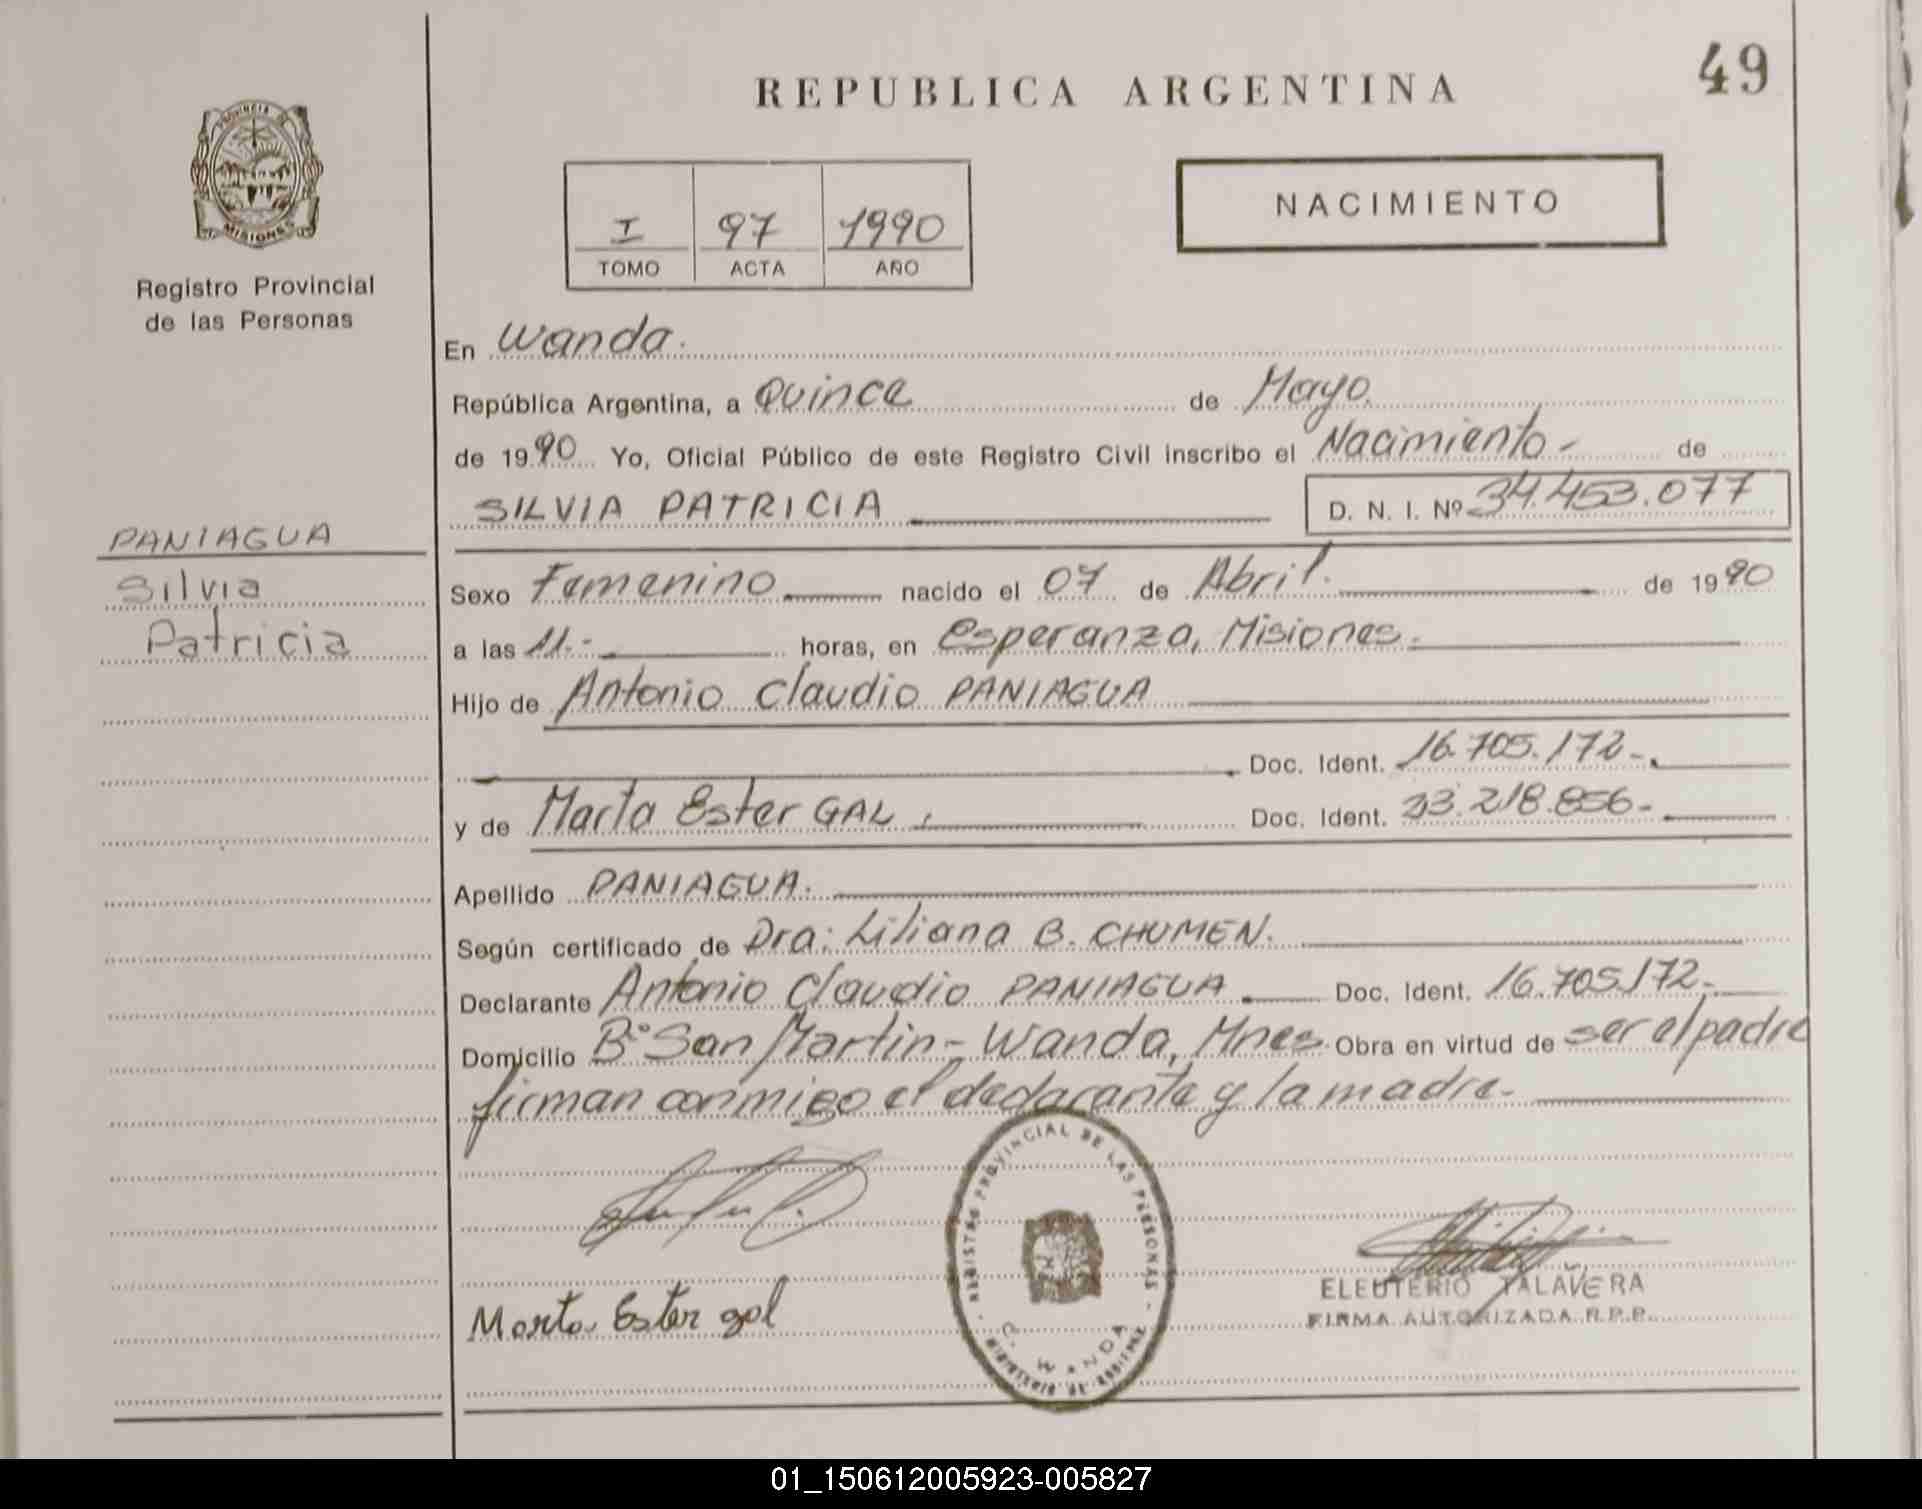 49
REPUBLICA ARGENTINA
PROVINCIA DE
MISIONES
Registro Provincial
de las Personas
I 97 1990
TOMO ACTA AÑO
NACIMIENTO
En Wanda.
República Argentina, a Quince de Mayo
de 1990 Yo, Oficial Público de este Registro Civil inscribo el Nacimiento- de
SILVIA PATRICIA D. N. I. Nº 34.453.077
PANIAGUA
Silvia
Patricia
Sexo Femenino nacido el 07 de Abril. de 1990
a las 11.- horas, en Esperanza, Misiones.
Hijo de Antonio Claudio PANIAGUA
Doc. Ident. 16.705.172-.
y de Marta Ester GAL, Doc. Ident. 33.218.856-
Apellido PANIAGUA.
Según certificado de Dra: Liliana B. CHUMEN.
Declarante Antonio Claudio PANIAGUA Doc. Ident. 16.705.172-
Domicilio Bº San Martin-Wanda, Mnes. Obra en virtud de ser el padre
firman conmigo el declarante y la madre-
REGISTRO PROVINCIAL DE LAS PERSONAS
WANDA
MINISTERIO DE GOBIERNO
Marta Ester gal
ELEUTERIO TALAVERA
FIRMA AUTORIZADA R.P.P.
01_150612005923-005827